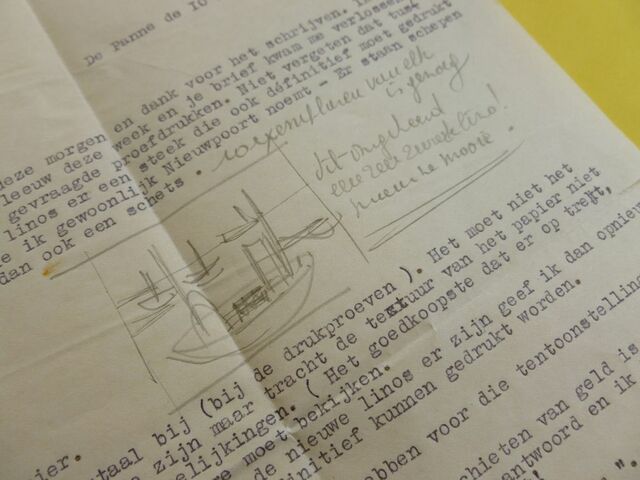 De Panne de 10
deze morgen en dank voor het schrijven.
leeuw deze week en je brief kwam me verlossen
gevraagde proefdrukken. Niet vergeten dat tus
linos er een steek die ook définitief moet gedrukt
e ik gewoonlijk Nieuwpoort noemt - Er staan schepen
dan ook een schets.
van elk
is genoeg
dit ongekleurd
een zeer
taal bij (bij de drukproeven). Het moet niet het
zijn maar tracht de textuur van het papier niet
elijkingen. (Het goedkoopste dat er op treft,
e moet bekijken.
de nieuwe linos er zijn geef ik dan opnieuw
initief kunnen gedrukt worden.
ebben voor die tentoonstelling
schieten van geld is
antwoord en ik